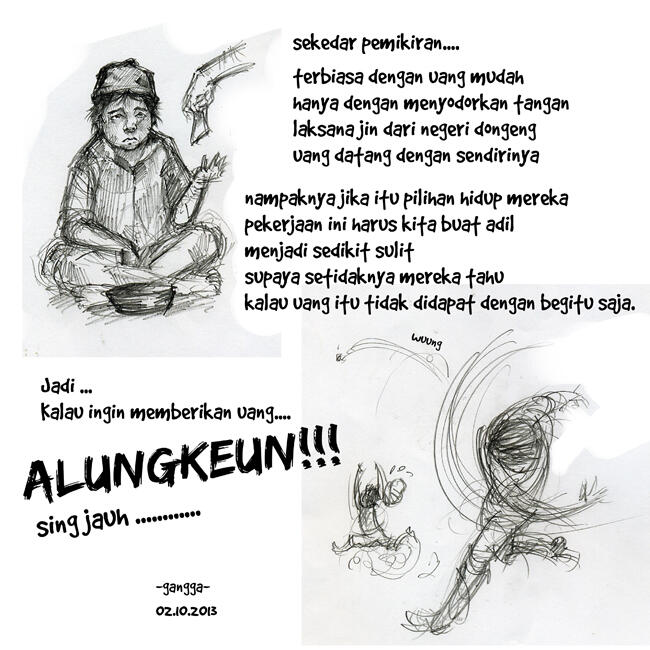 sekedar pemikiran....
terbiasa dengan uang mudah
hanya dengan menyodorkan tangan
laksana jin dari negeri dongeng
uang datang dengan sendirinya
nampaknya jika itu pilihan hidup mereka
pekerjaan ini harus kita buat adil
menjadi sedikit sulit
supaya setidaknya mereka tahu
kalau uang itu tidak didapat dengan begitu saja.
wuung
Jadi ...
Kalau ingin memberikan uang....
ALUNGKEUN!!!
sing jauh ............
-gangga-
02.10.2013